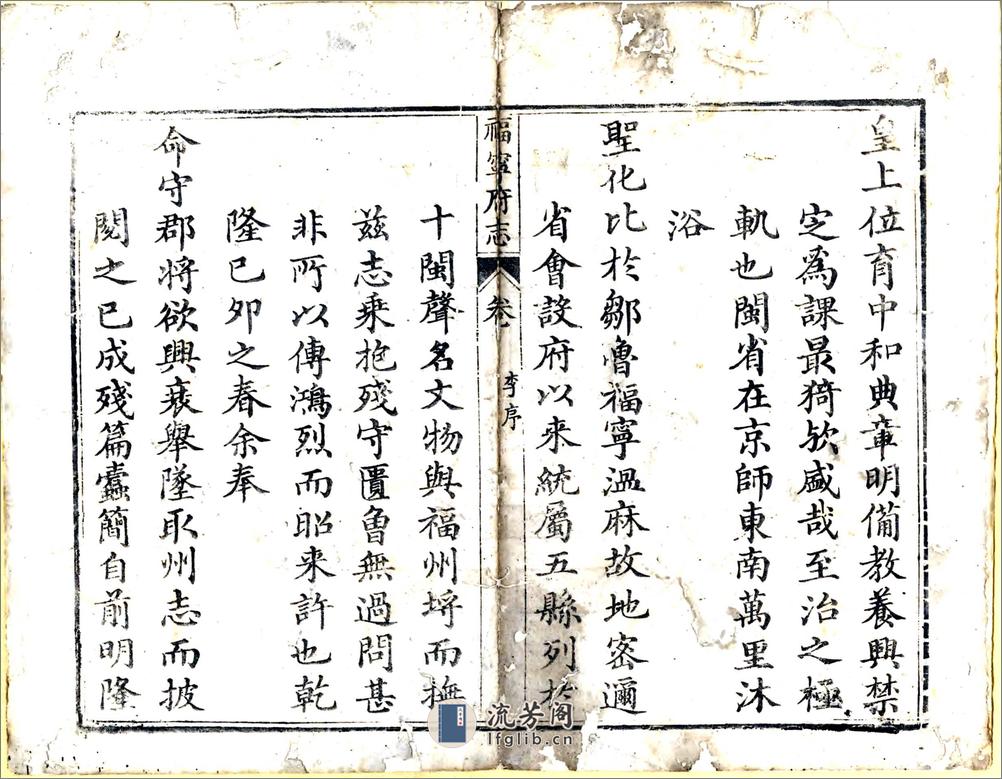 皇上位育中和典章明備教養興禁
定為課最猗歟盛哉至治之極
軌也閩省在京師東南萬里沐
浴
聖化比於鄒魯福寧溫麻故地密邇
省會設府以來統屬五縣列於
福寧府志 卷 李序
十閩聲名文物與福州埒而撫
茲志乘抱殘守匱魯無過問甚
非所以傳鴻烈而昭来許也乾
隆己夘之春余奉
命守郡將欲興衰舉墜取州志而披
閱之已成殘篇蠹簡自前明隆
流芳阁
lfglib.cn